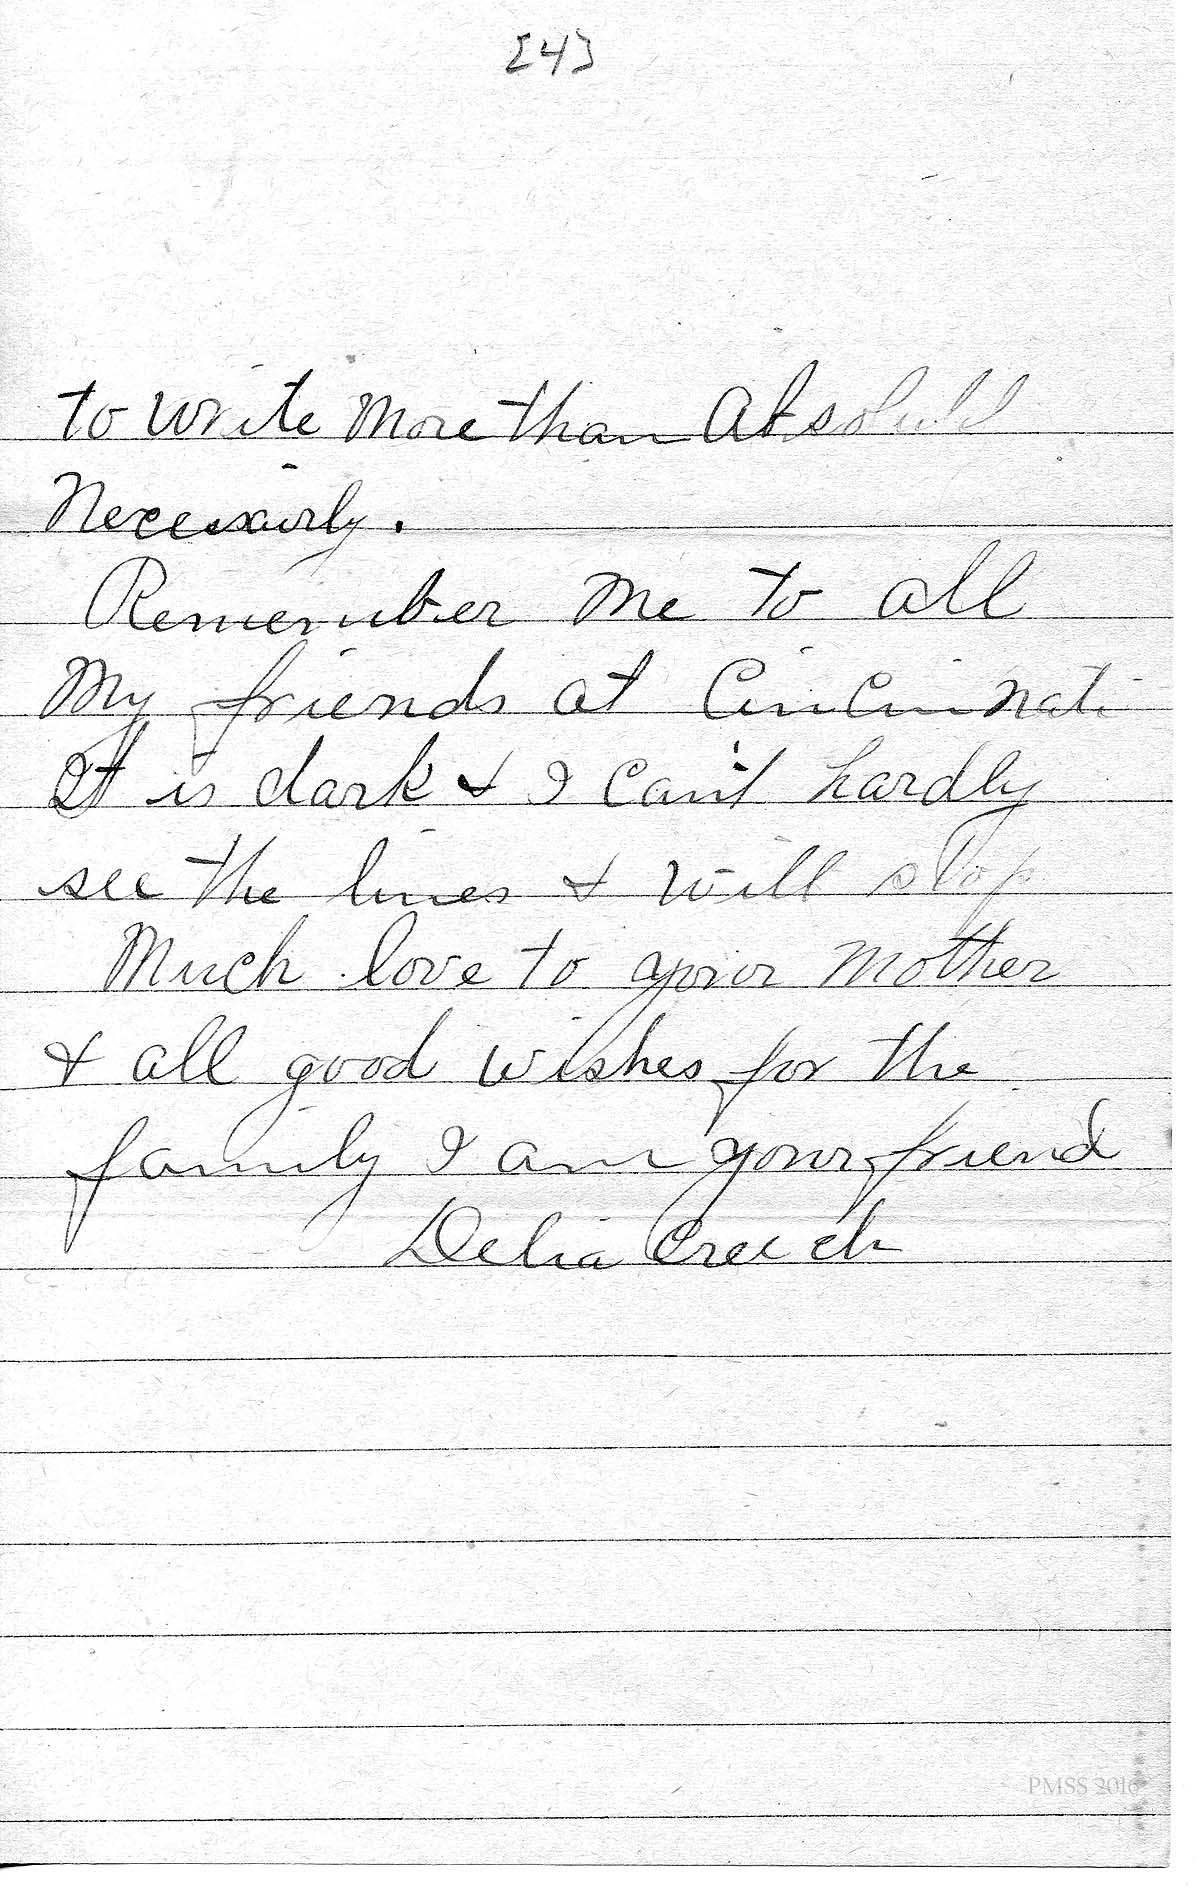 [4]
to write more than
Necessairly.
Remember me to all
My friends at Cincinnati
It is dark & I can't hardly
see the lines & will stop
Much love to your Mother
& all good wishes for the
family I am your friend
Delia Creech
PMSS 2016